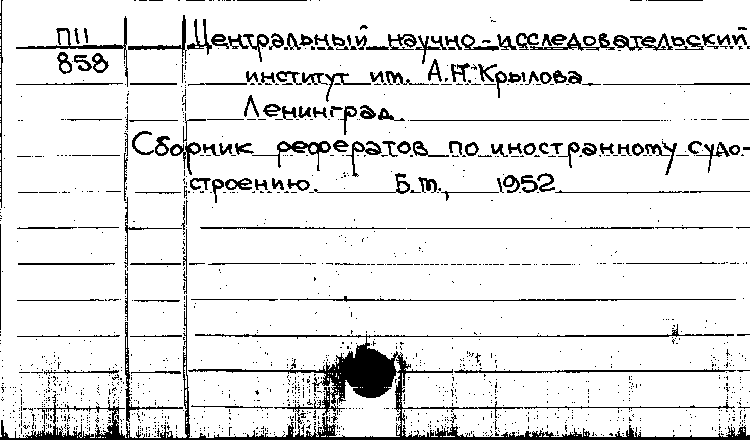 П11 Центральный научно-исследовательский
858 институт им. А.Н. Крылова.
Ленинград.
Сборник рефератов по иностранному судо-
строению. Б.м., 1952.